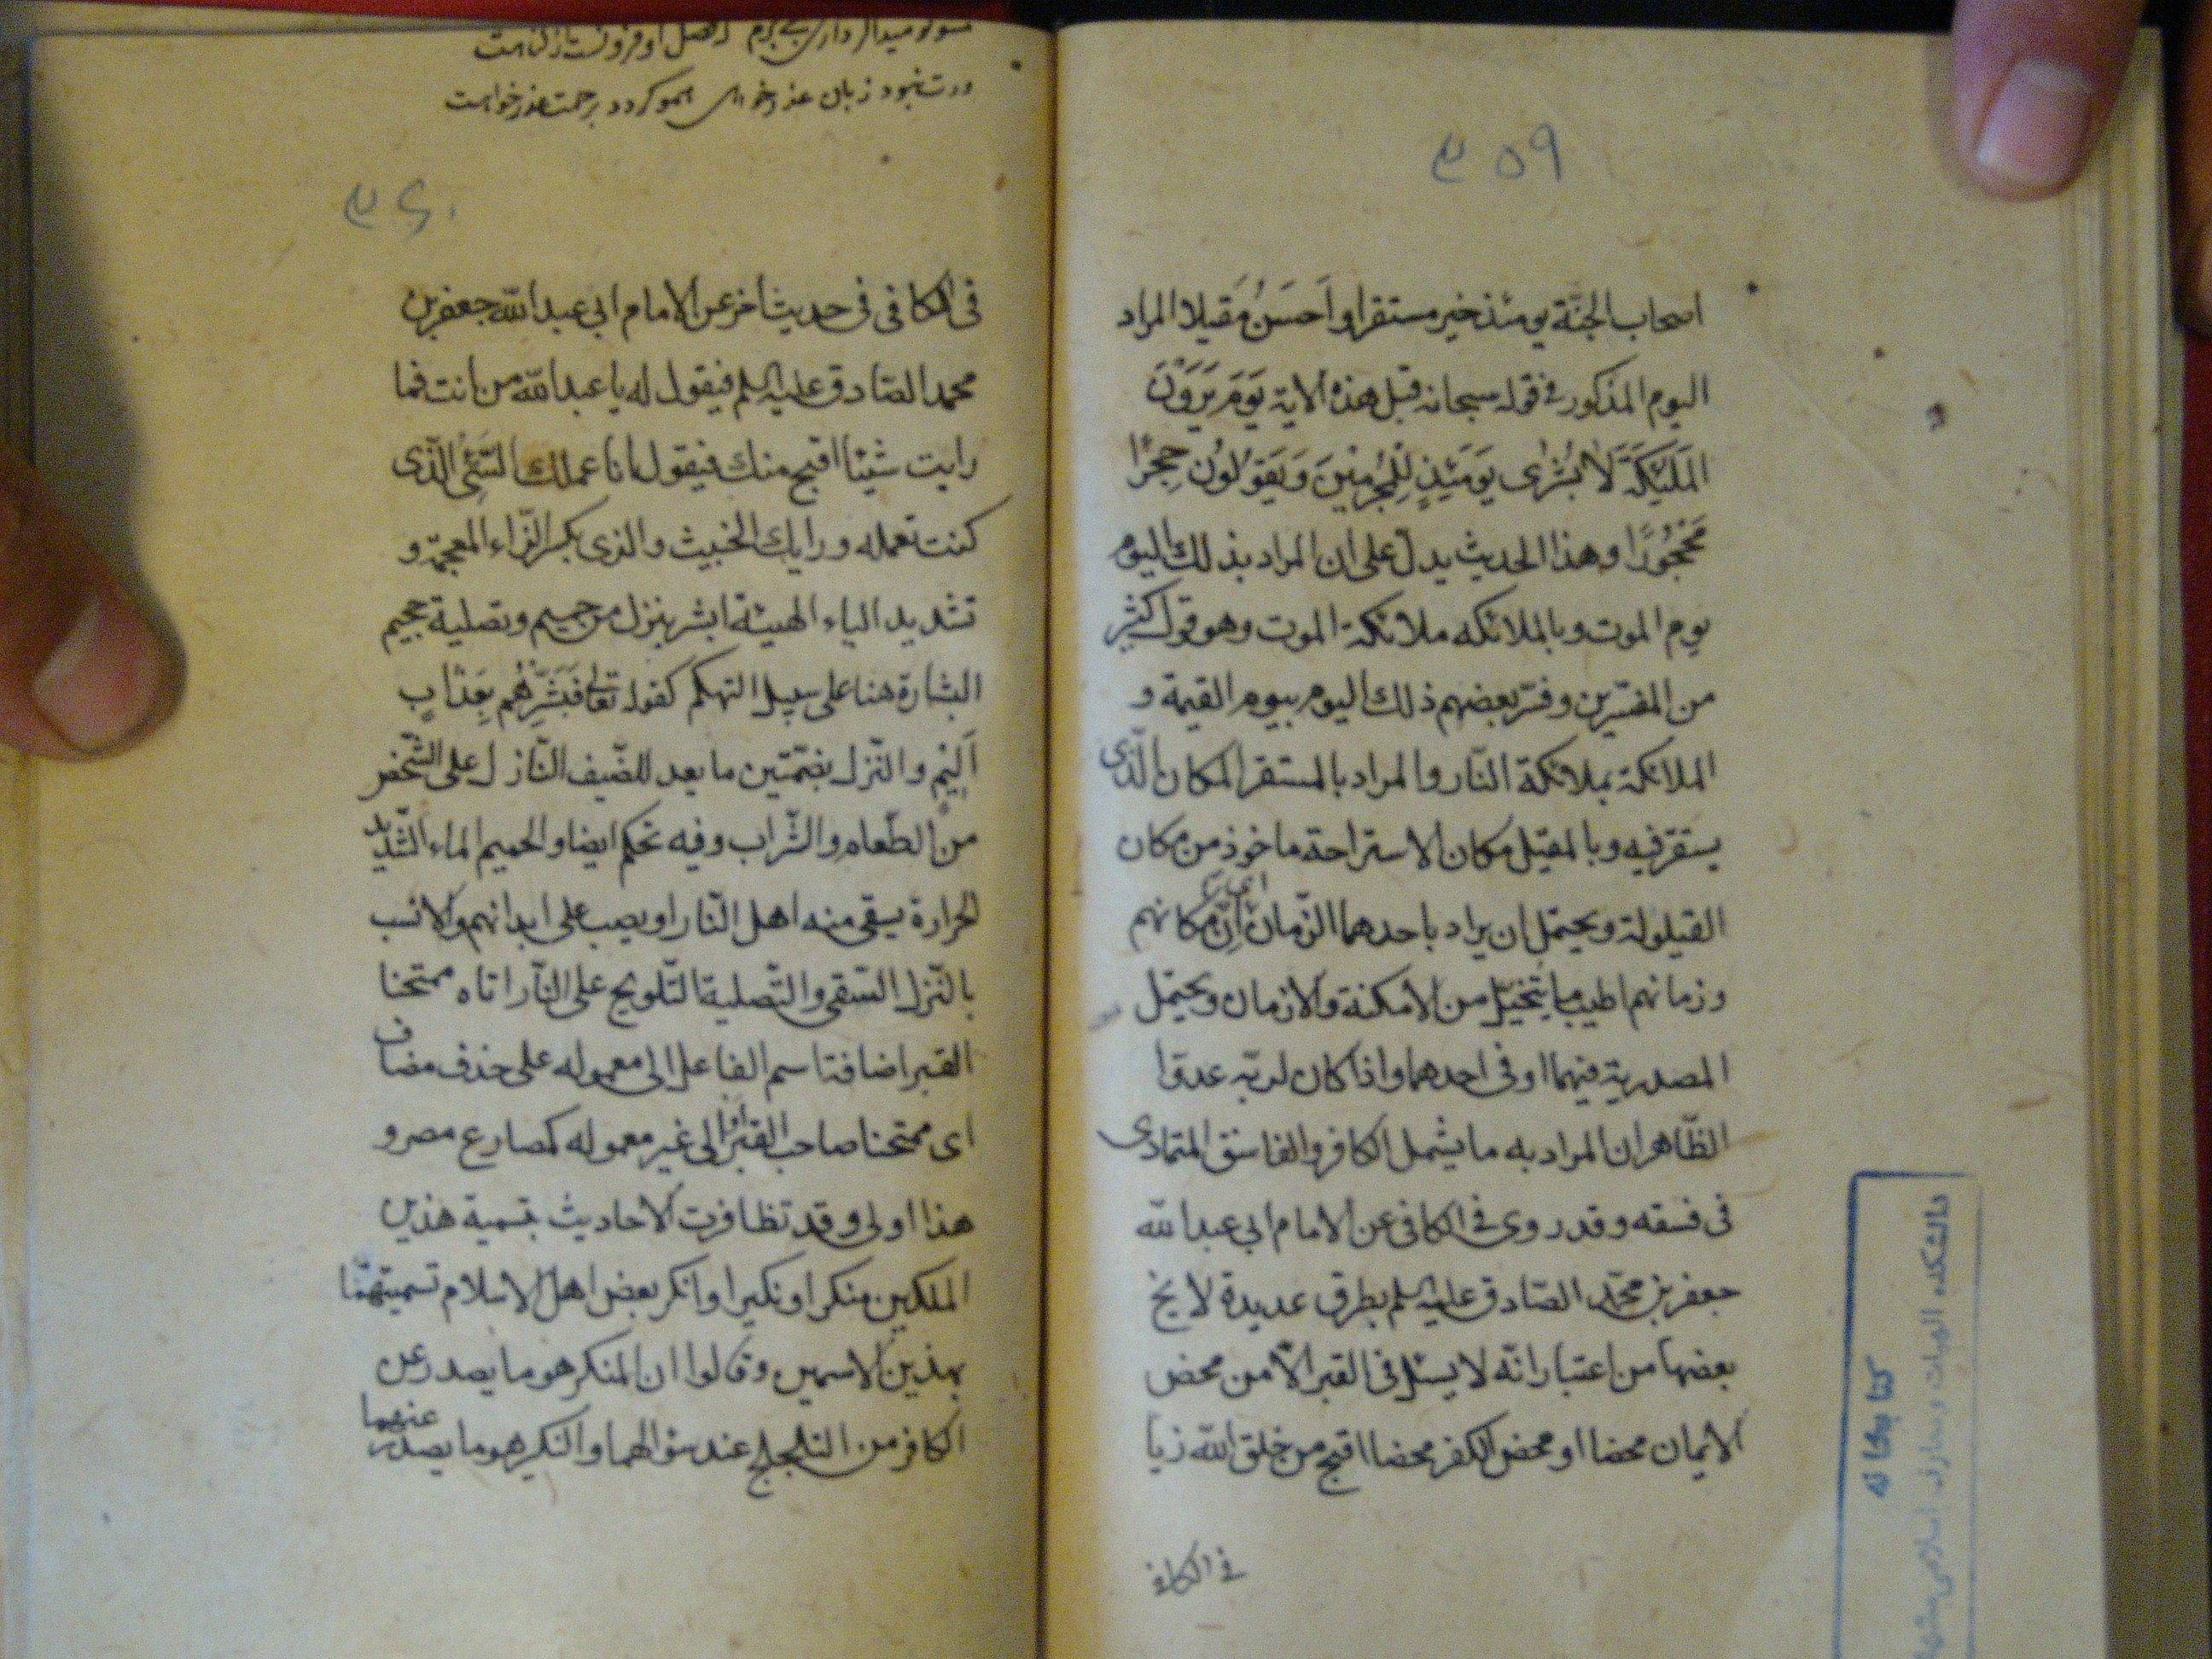 ۳۵۹
اصحاب الجنّة يومئذ خير مستقرا و اَحسَنُ مَقيلا المراد
اليوم المذكور فى قوله سبحانه قبل هذه الاية يَومَ يَرَوْنَ
المَلئِكَةَ لَا بُشْرٰى يَومَئِذٍ لِلْمُجْرِمِيْنَ وَيَقوُلوُن حِجرًا
مَحْجُورًا و هذا الحديث يدلّ على ان المراد بذلك اليوم
يوم الموت و بالملائكه ملائكة الموت و هو قول كثير
من المفسّرين و فسّر بعضهم ذلك اليوم بيوم القيمة و
الملائكة بملائكة النّار و المراد بالمستقر المكان الّذى
يستقر فيه و بالمقيل مكان الاستراحة ماخوذ من مكان
القيلولة و يحتمل ان يراد باحدهما الزّمان اى انّ مكانهم
و زمانهم اطيب ما يتخيّل من الامكنة و الازمان و يحتمل
المصدرية فيهما او فى احدهما و اذا كان لربّه عدوّا
الظّاهر ان المراد به ما يشمل الكافر و الفاسق المتمادى
فى فسقه و قد روى فى الكافى عن الامام ابي عبد الله
جعفر بن محمّد الصّادق عليه السلم بطرق عديدة لا يخ
بعضها من اعتبار انّه لا يسئل فى القبر الّا من محض
الايمان محضا او محض الكفر محضا اقبح من خلق الله زيا
فى الكافى
ورت نبود زبان عذر خواهى همو كردد برحمت عذر خواهت
۳۶۰
فى الكافى فى حديث اخر عن الامام ابي عبد الله جعفر بن
محمد الصّادق عليه السلم فيقول له يا عبد الله من انت فما
رايت شيئا اقبح منك فيقول انا عملك السّيّئ الّذى
كنت تعمله و رايك الخبيث و الزى بكسر الزّاء المعجمة و
تشديد الياء الهيئة ابشر بنزل من حميم و تصلية جحيم
البشارة هنا على سبيل التهكم كقوله تعالى فَبَشِّرْهُم بِعَذَابٍ
اَليْمٍ و النّزل بضمّتين ما يعد للضّيف النّازل على الشّخص
من الطّعام و الشّراب و فيه تهكم ايضا و الحميم الماء الشّديد
الحرارة يسقى منه اهل النّار او يصب على ابدانهم و الانسب
بالنّزل السّقى و التّصلية التّلويح على النّار اتاه ممتحنا
القبر اضافة اسم الفاعل الى معموله على حذف مضاف
اى ممتحنا صاحب القبر او الى غير معموله كمصارع مصر و
هذا اولى و قد تظافرت الاحاديث بتسمية هذين
الملكين منكرا و نكيرا و انكر بعض اهل الاسلام تسميتهما
بهذين الاسمين و قالوا ان المنكر هو ما يصدر عن
الكافر من التلجلج عند سؤالهما و النكير هو ما يصدر عنهما
كتابخانه
دانشكده الهيات و معارف اسلامى مشهد